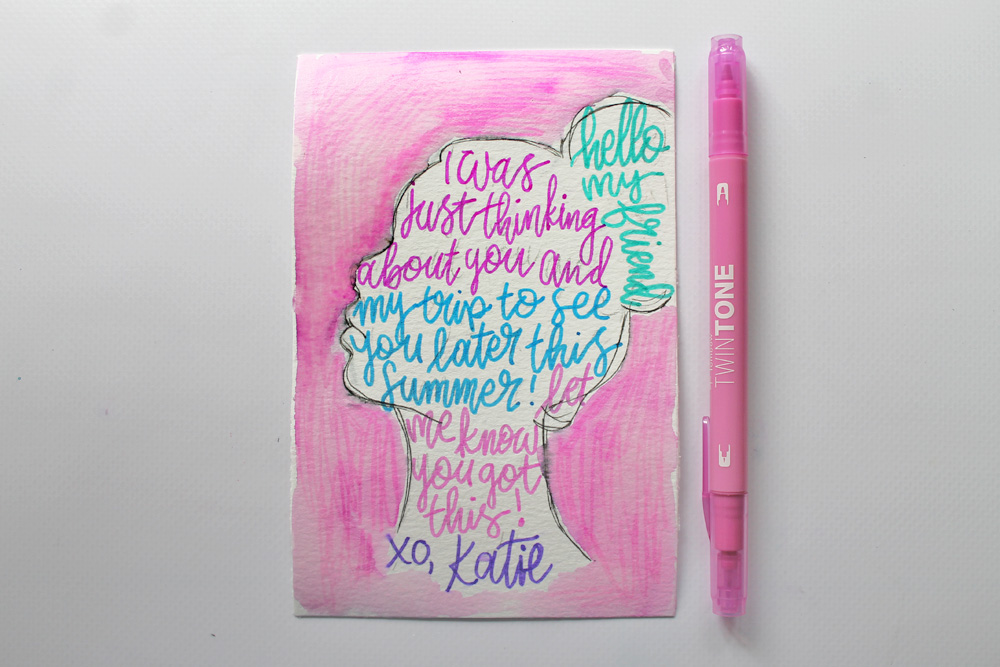 hello
my
friend,
I was
just thinking
about you and
my trip to see
you later this
summer! Let
me know
you got
this!
XO, Katie
TWINTONE